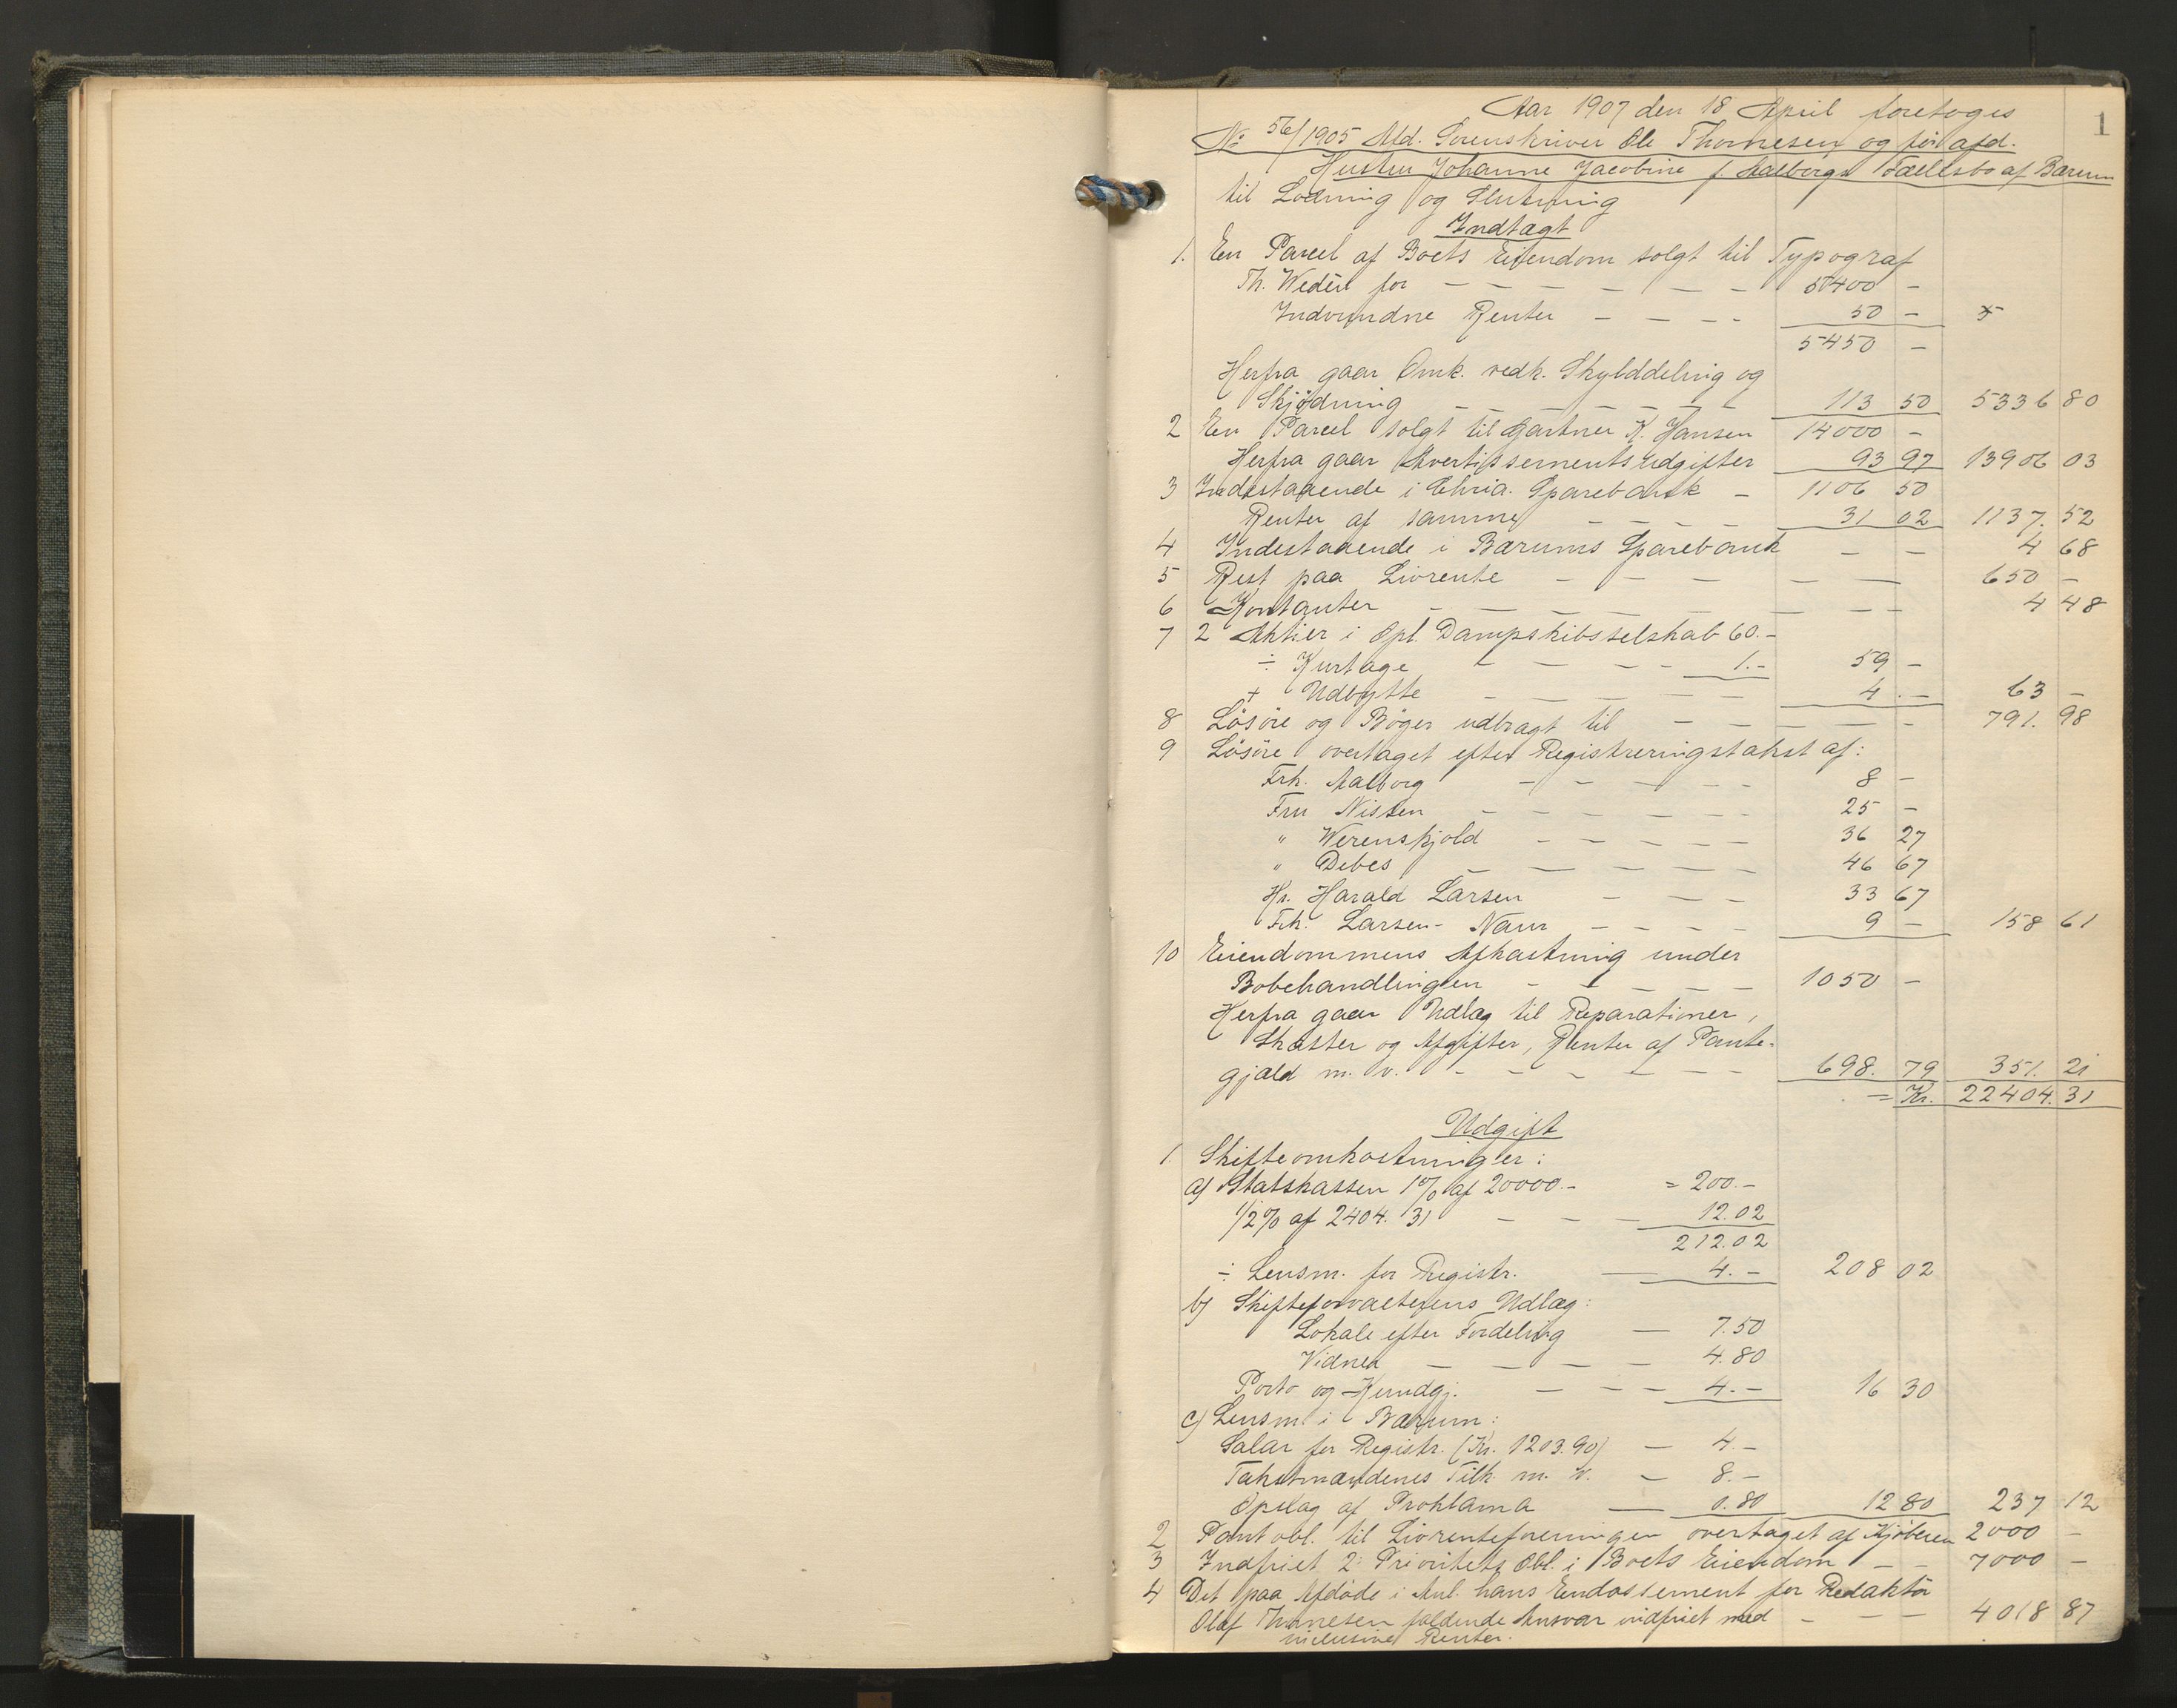 1
Aar 1907 den 18 April foretoges
No 56/1905 Afd. Sorenskriver Ole Thomesen og før afd.
Hustru Johanne Jacobine f. Aalborgs Fællesbo af Bærum
til Lodning og Slutning
Indtægt
1. En Parcel af Boets Eiendom solgt til Typograf
Th. Wedén for - - - - - - - 5400 -
Indvundne Renter - - - - 50 -
5450 -
Herfra gaar Omk. vedk. Skylddeling og
Skjødning - - - - - - 113 50 5336 80
2 En Parcel solgt til Gartner K. Hansen 14000 -
Herfra gaar Avertissementsudgifter 93 97 13906 03
3 Indestaaende i Chria. Sparebank - 1106 50
Renter af samme - - - - 31 02 1137. 52
4 Indestaaende i Bærums Sparebank - - 4 68
5 Rest paa Livrente - - - - - 650 -
6 Kontanter - - - - - - - - 4 48
7 2 Aktier i Opl. Dampskibsselskab 60.-
÷ Kurtage - - - - - 1.- 59 -
+ Udbytte - - - - - 4. - 63 -
8 Løsøre og Bøger udbragt til - - - - - 791. 98
9 Løsøre overtaget efter Registreringstakst af:
Frk. Aalborg - - - - - 8 -
Fru Nissen - - - - - - 25 -
" Werenskjold - - - - - 36 27
" Debes - - - - - - 46 67
Hr. Harald Larsen - - - 33 67
Frk. Larsen-Naur - - - - 9 - 158 61
10 Eiendommens Afkastning under
Bobehandlingen - - - - - 1050 -
Herfra gaar Udlæg til Reparationer,
Skatter og Afgifter, Renter af Pante-
gjæld m. v. - - - - - - 698. 79 351. 21
= Kr. 22404. 31
Udgift
1. Skifteomkostninger:
a) Statskassen 1% af 20000.- = 200.-
1/2% af 2404. 31 - - - 12.02
212.02
÷ Lensm. for Registr. - 4. - 208 02
b) Skifteforvalterens Udlæg:
Lokale efter Fordeling - 7.50
Vidner - - - - - 4.80
Porto og Kundgj. - - - 4.- 16 30
c) Lensm i Bærum:
Salær for Registr. (Kr. 1203.90) - 4.-
Takstmændenes Tilk. m. v. - 8.-
Opslag af Proklama - 0.80 12 80 237 12
2 Pantobl. til Livrenteforeningen overtaget af Kjøberen 2000 -
3 Indfriet 2. Prioritets Obl. i Boets Eiendom - - 7000 -
4 Det paa Afdøde i Anl. hans Endossement for Redaktør
Olaf Thomesen faldende Ansvar indfriet med - - - 4018 87
inclusive Renter.